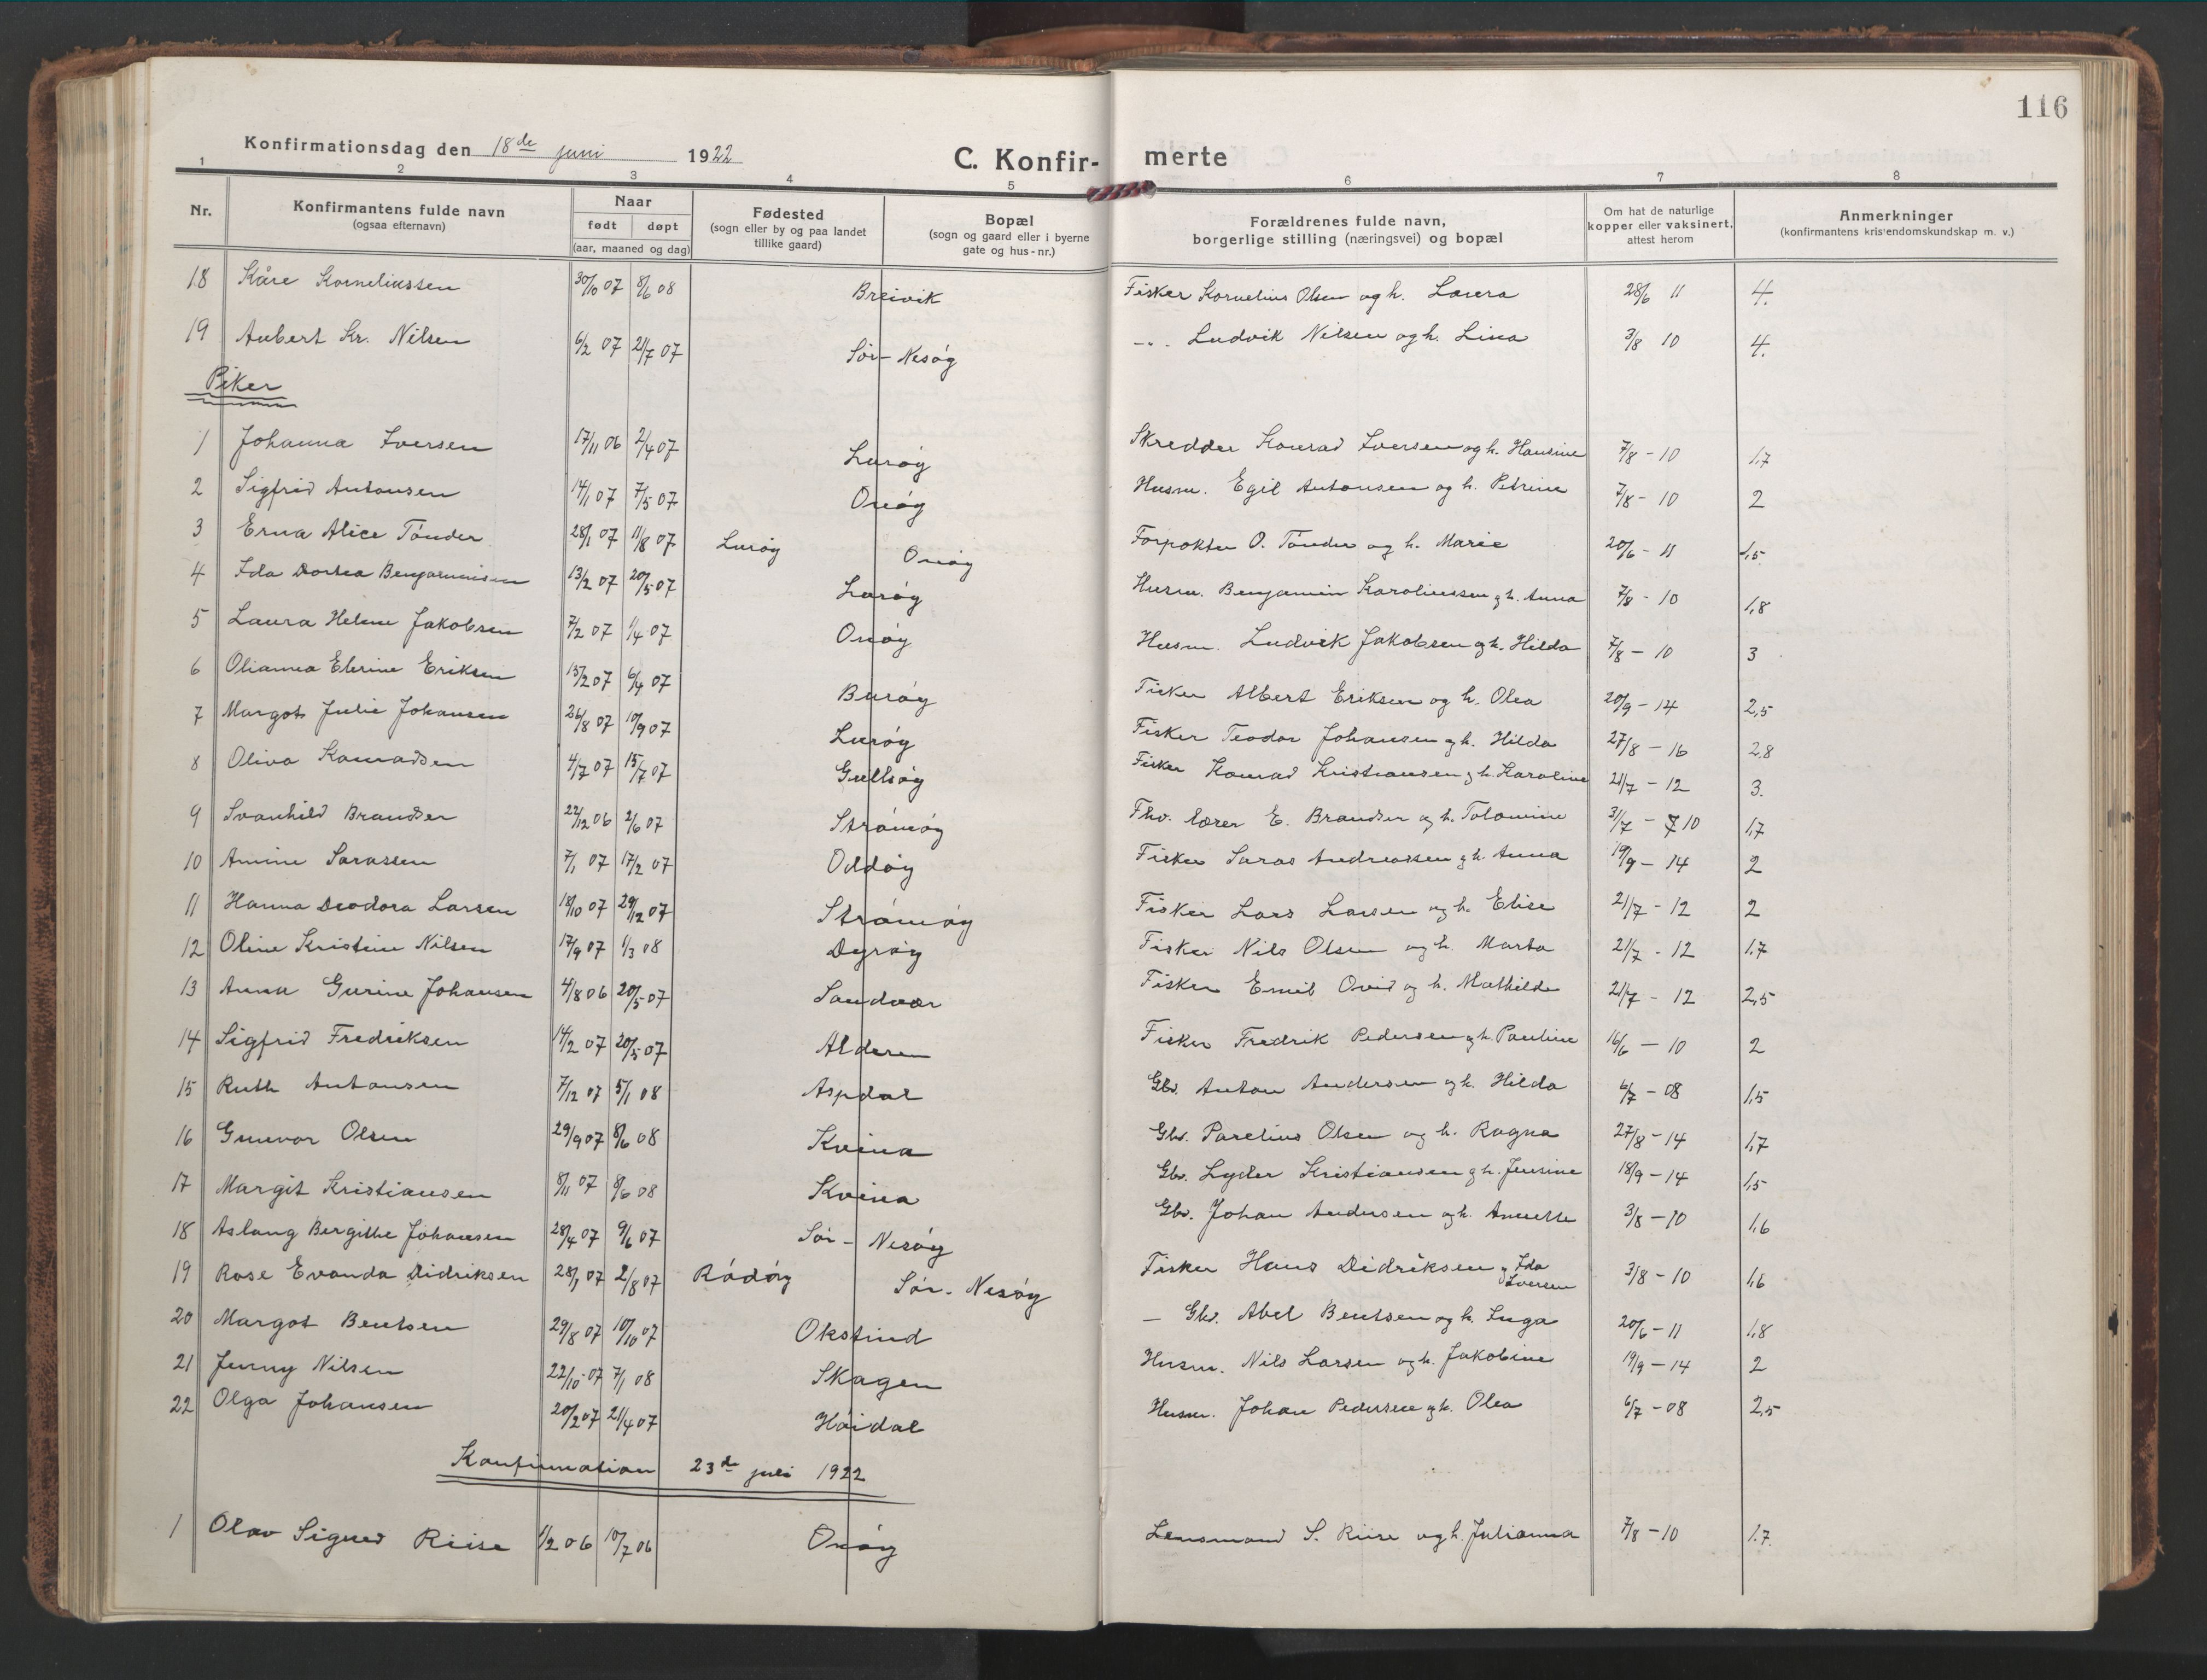 116
Konfirmationsdag den 18de juni 1922
C. Konfir- merte
1 2 3 4 5 6 7 8
Nr. Konfirmantens fulde navn (ogsaa efternavn) Naar født døpt (aar, maaned og dag) Fødested (sogn eller by og paa landet tillike gaard) Bopæl (sogn og gaard eller i byerne gate og hus-nr.) Forældrenes fulde navn, borgerlige stilling (næringsvei) og bopæl Om hat de naturlige kopper eller vaksinert, attest herom Anmerkninger (konfirmantens kristendomskundskap m. v.)
18 Kåre Korneliussen 30/10 07 8/6 08 Breivik Fisker Kornelius Olsen og h. Laura 28/6 11 4.
19 Aubert Kr. Nilsen 6/2 07 21/7 07 Sör-Nesöy -"- Ludvik Nilsen og h. Lina 3/8 10 4.
Piker
1 Johanna Iversen 17/11 06 2/4 07 Luröy Skredder Konrad Iversen og h. Hansine 7/8 - 10 1,7
2 Sigfrid Antonsen 14/1 07 7/5 07 Onöy Husm. Egil Antonsen og h. Petrine 7/8 - 10 2
3 Erna Alice Tönder 28/1 07 11/8 07 Luröy Onöy Forpakter O. Tönder og h. Marie 20/6 - 11 1,5
4 Ida Dortea Benjaminsen 13/2 07 20/5 07 Luröy Husm. Benjamin Karoliussen og h. Anna 7/8 - 10 1,8
5 Laura Helene Jakobsen 7/2 07 1/4 07 Onöy Husm. Ludvik Jakobsen og h. Hilda 7/8 - 10 3
6 Olianna Elerine Eriksen 15/2 07 6/4 07 Buröy Fisker Albert Eriksen og h. Olea 20/9 - 14 2,5
7 Margot Julie Johansen 26/8 07 10/9 07 Luröy Fisker Teodor Johansen og h. Hilda 27/8 - 16 2,8
8 Oliva Konradsen 4/7 07 15/7 07 Gullsöy Fisker Konrad Kristiansen og h. Karoline 21/7 - 12 3.
9 Svanhild Brandser 22/12 06 2/6 07 Strömöy Fhv. lærer E. Brandser og h. Tolomine 31/7 - 10 1,7
10 Amine Sarassen 7/1 07 17/2 07 Oddöy Fisker Saras Andreassen og h. Anna 19/9 - 14 2
11 Hanna Deodora Larsen 18/10 07 29/12 07 Strömöy Fisker Lars Larsen og h. Elise 21/7 - 12 2
12 Oline Kristine Nilsen 17/9 07 1/3 08 Dyröy Fisker Nils Olsen og h. Marta 21/7 - 12 1,7
13 Anna Gurine Johansen 4/8 06 20/5 07 Sandvær Fisker Emil Ovid og h. Mathilde 21/7 - 12 2,5
14 Sigfrid Fredriksen 14/2 07 20/5 07 Alderen Fisker Fredrik Pedersen og h. Pauline 16/6 - 10 2
15 Ruth Antonsen 7/12 07 5/1 08 Aspdal Gbr. Anton Andersen og h. Hilda 6/7 - 08 1,5
16 Gunvor Olsen 29/9 07 8/6 08 Kvina Gbr. Parelius Olsen og h. Ragna 27/8 - 14 1,7
17 Margit Kristiansen 8/11 07 8/6 08 Kvina Gbr. Lyder Kristiansen og h. Jensine 18/9 - 14 1,5
18 Aslaug Bergithe Johansen 28/4 07 9/6 07 Sör-Nesöy Gbr. Johan Andersen og h. Annette 3/8 - 10 1,6
19 Rose Evanda Didriksen 28/1 07 2/8 07 Rödöy Sör-Nesöy Fisker Hans Didriksen og Ida Iversen 3/8 - 10 1,6
20 Margot Bentsen 29/8 07 10/10 07 Okstind - Gbr. Abel Bentsen og h. Inga 20/6 - 11 1,8
21 Jenny Nilsen 22/10 07 7/1 08 Skagen Husm. Nils Larsen og h. Jakobine 19/9 - 14 2
22 Olga Johansen 20/2 07 21/4 07 Höidal Husm. Johan Pedersen og h. Olea 6/7 - 08 2,5
Konfirmation 23de juli 1922
1 Olav Sigurd Riise 1/2 06 10/7 06 Onöy Lensmand S. Riise og h. Julianna 7/8 - 10 1.7.